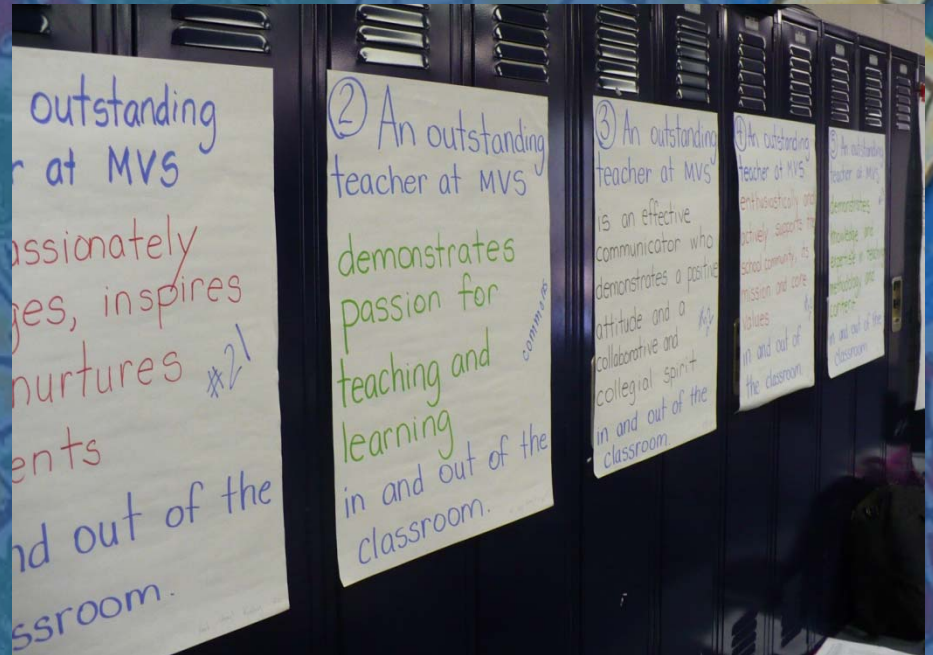 outstanding
r at MVS
assionately
ges, inspires
nurtures #2
ents
nd out of the
ssroom.
② An outstanding
teacher at MVS
demonstrates
passion for
teaching and
learning
commands
in and out of the
classroom.
③ An outstanding
teacher at MVS
is an effective
communicator who
demonstrates a positive
attitude and a
collaborative and
collegial spirit
in and out of the
classroom.
④ An outstanding
teacher at MVS
enthusiastically and
actively supports the
school community, its
mission and core
values
in and out of
the classroom.
⑤ An outstanding
teacher at MVS
demonstrates
knowledge and
expertise in teaching
methodology and
content
in and out of the
classroom.